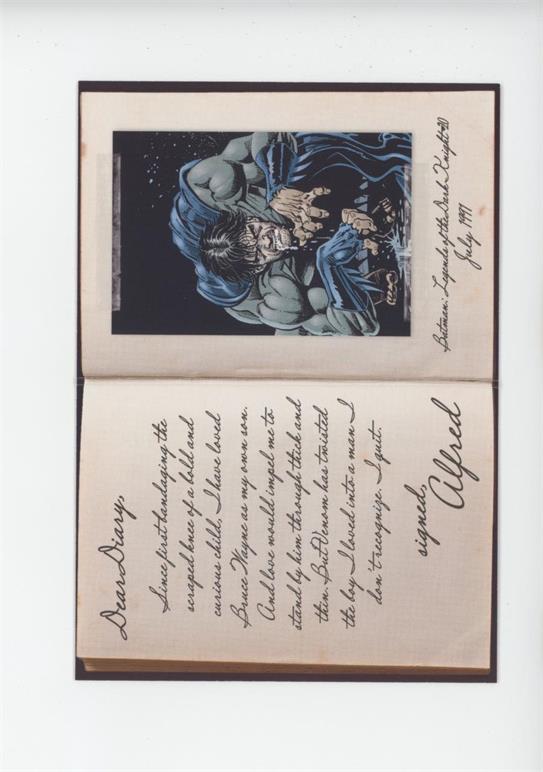 Dear Diary,
Since first bandaging the
scraped knee of a bold and
curious child, I have loved
Bruce Wayne as my own son.
And love would impel me to
stand by him through thick and
thin. But Venom has twisted
the boy I loved into a man I
don't recognize. I quit.
signed,
Alfred
Batman: Legends of the Dark Knight #20
July, 1991